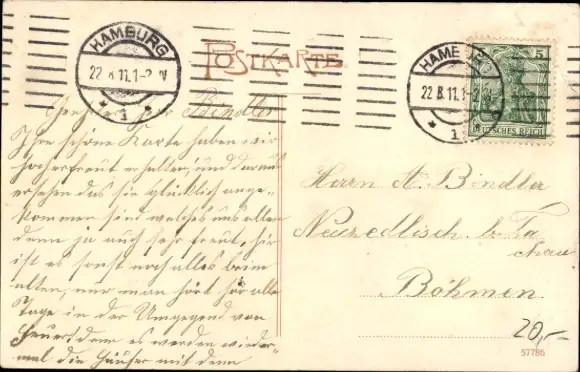 POSTKARTE
HAMBURG
22.8.11.1-2 N
*1*
HAMBURG
22.8.11.1-2
*1
5
DEUTSCHES REICH
Geehrter Herr Bindler
Ihre schöne Karte haben wir
hocherfreut erhalten, und daraus
ersehen das sie glücklich ange-
kommen sind welches uns allen
denn ja auch sehr freut, hir
ist es sonst noch alles beim
alten, nur man hört hir alle
Tage in der Umgegend von
Feuer denn es werden wieder
mal die Häuser mit dem
Herrn A. Bindler
Neuzedlisch b. Ta
chau
Böhmen
20,-
57786